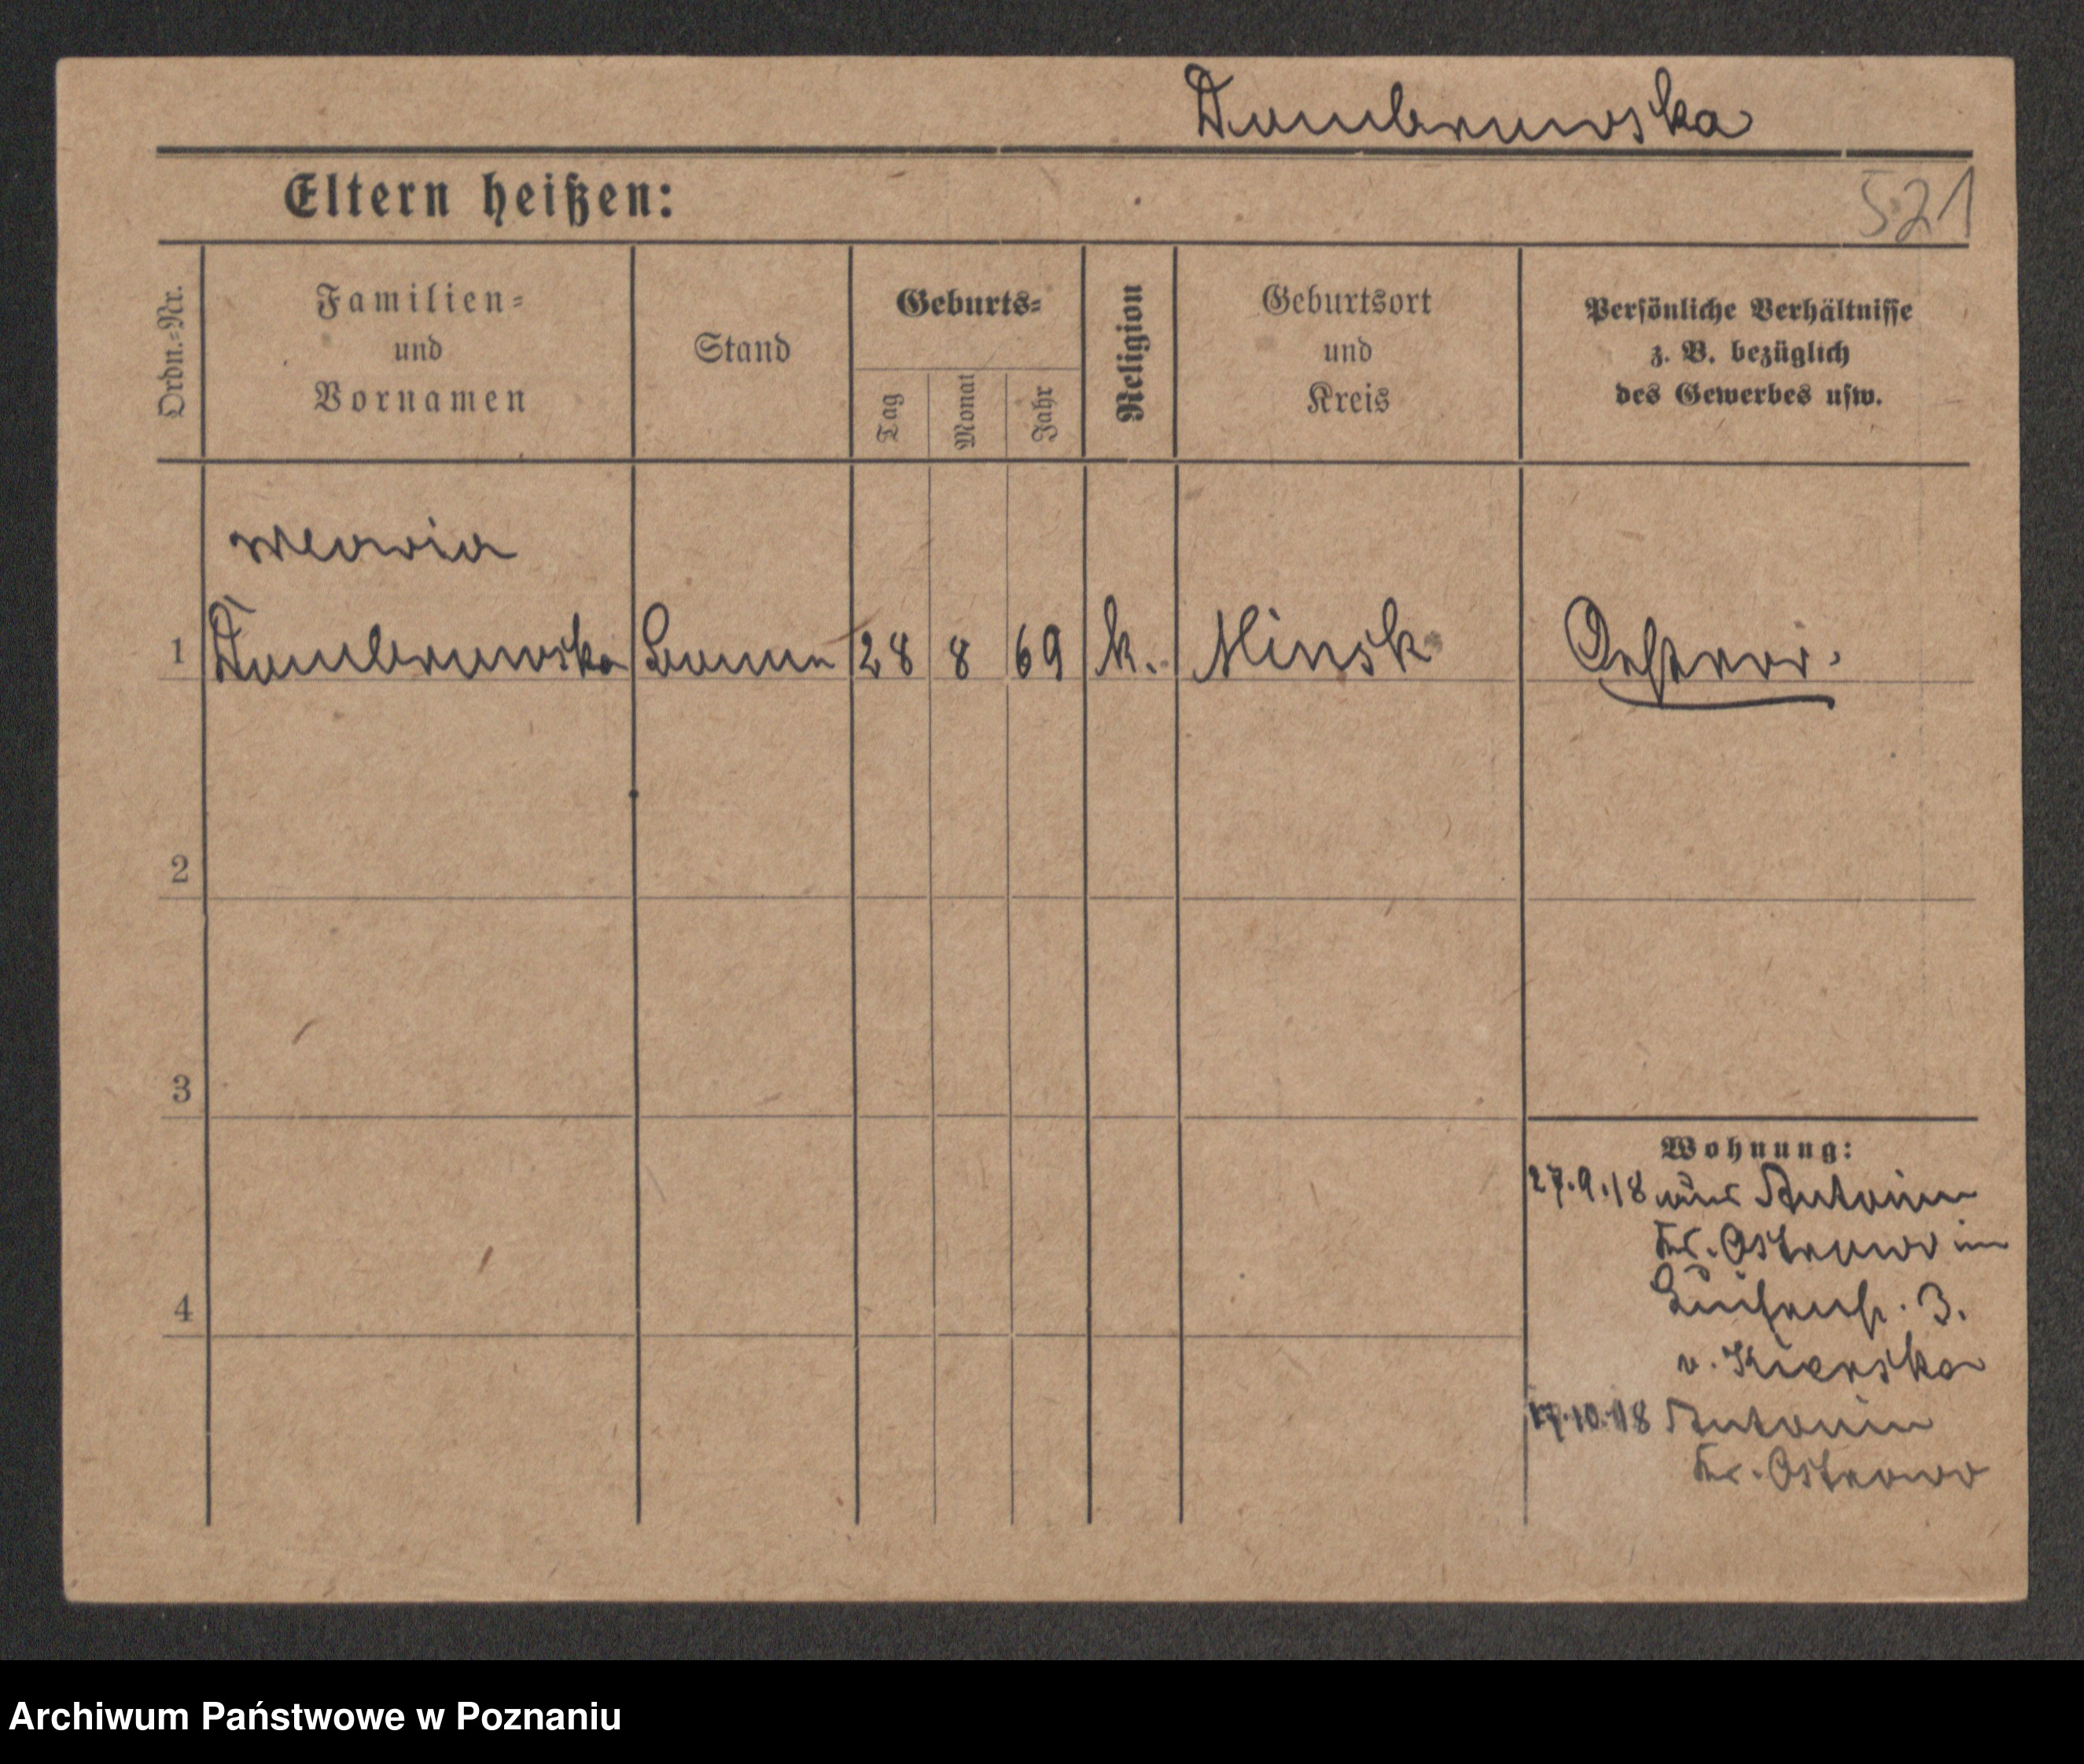 Dombrowska
Eltern heißen:
521
Ordn.=Nr.
Familien=
und
Vornamen
Stand
Geburts=
Tag
Monat
Jahr
Religion
Geburtsort
und
Kreis
Persönliche Verhältnisse
z. B. bezüglich
des Gewerbes usw.
Maria
1 Dombrowska 28 8 69 k. Minsk Österr.
2
3
4
Wohnung:
27.9.18 aus Antonin
Kr. Ostrowo in
Luisenst. 3.
v. Kierska
17.10.18 Antonin
Kr. Ostrowo
Archiwum Państwowe w Poznaniu